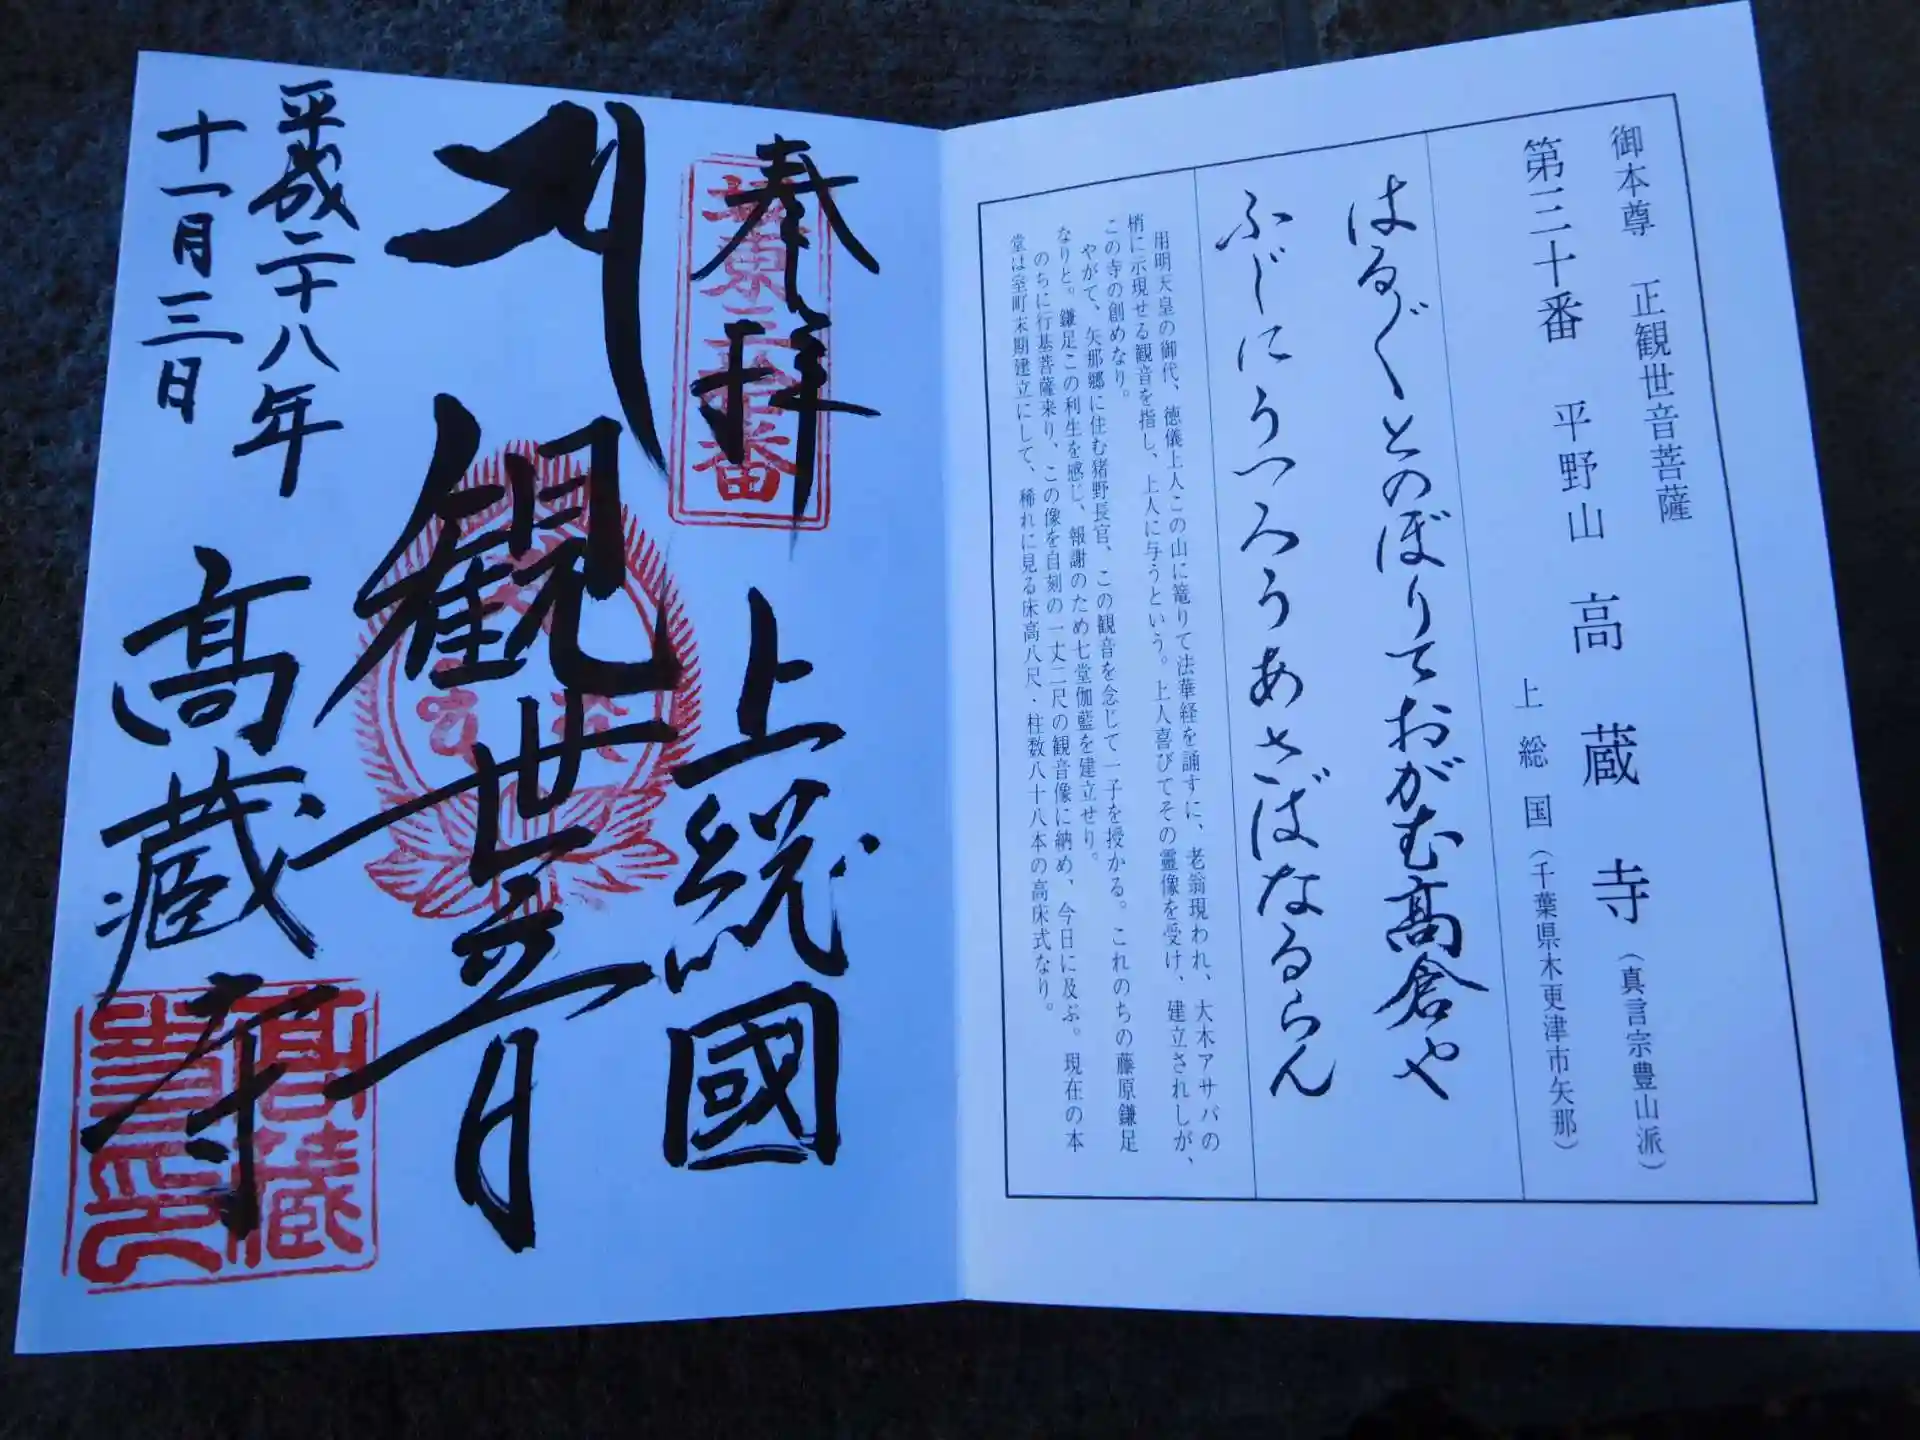 御本尊 正観世音菩薩
第三十番 平野山 高蔵寺（真言宗豊山派）
上総国（千葉県木更津市矢那）
はるばるとのぼりておがむ高倉や
ふじにうつろうあさばなるらん
用明天皇の御代、徳儀上人この山に篭りて法華経を誦すに、老翁現われ、大木アサバの
梢に示現せる観音を指し、上人に与うという。上人喜びてその霊像を受け、建立されしが、
この寺の創めなり。
やがて、矢那郷に住む猪野長官、この観音を念じて一子を授かる。これのちの藤原鎌足
なりと。鎌足この利生を感じ、報謝のため七堂伽藍を建立せり。
のちに行基菩薩来り、この像を自刻の一丈二尺の観音像に納め、今日に及ぶ。現在の本
堂は室町末期建立にして、稀れに見る床高八尺・柱数八十八本の高床式なり。
奉拝 上総國
坂東三十番
観世音
平成二十八年
十一月三日
髙蔵寺